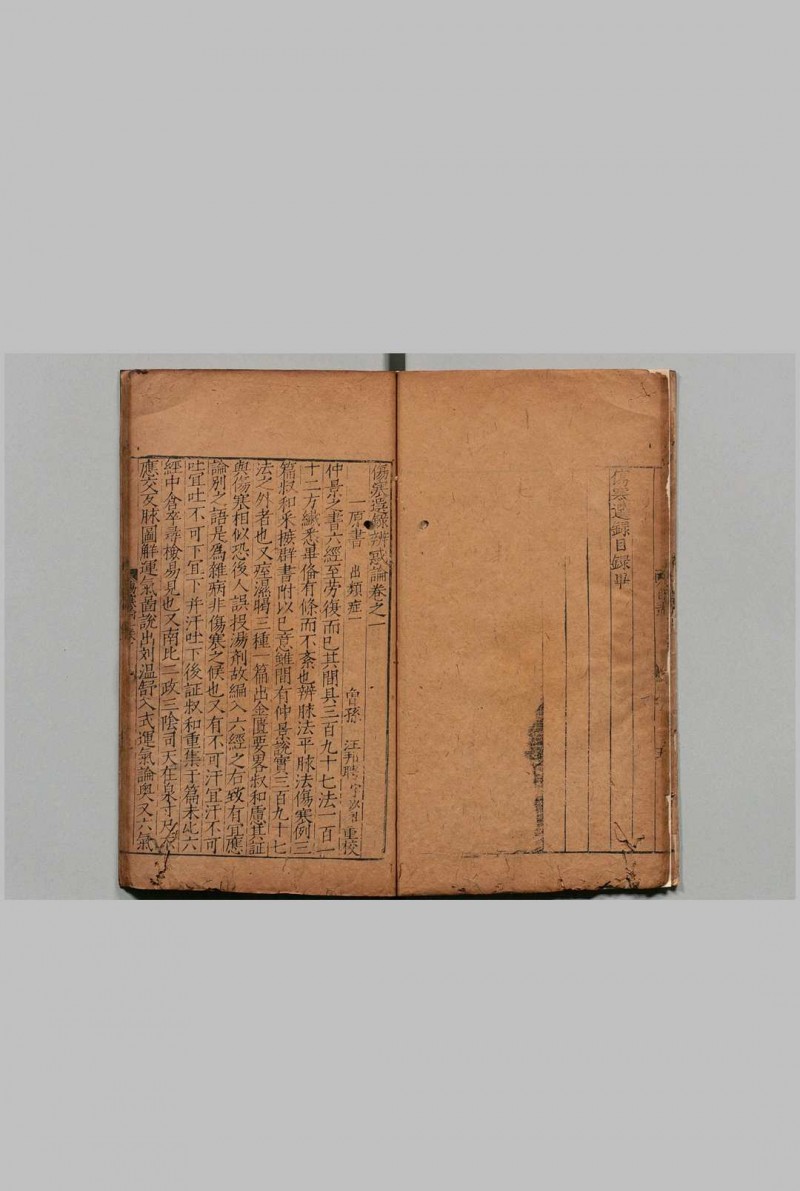 傷寒選錄目錄畢
傷寒選錄辨惑論卷之一
一原書 出類症一 曾孫 汪邦聘 重校
仲景之書六經至勞復而已其間具三百九十七法一百一
十二方纖悉畢俻有條而不紊也辨脉法平脉法傷寒例三
篇叔和采摭群書附以已意雖間有仲景說實三百九十七
法之外者也又痓濕暍三種一篇出金匱要畧叔和慮其証
與傷寒相似恐後人誤投湯劑故編入六經之右致有宜應
論別之語是爲雜病非傷寒之候也又有不可汗宜汗不可
吐宜吐不可下宜下并汗吐下後証叔和重集于篇末此六
經中倉卒尋檢易見也又南北二政三陰司天在泉寸尺
應交反脉圖解運氣啚說出刘温舒入式運氣論奧又六氣